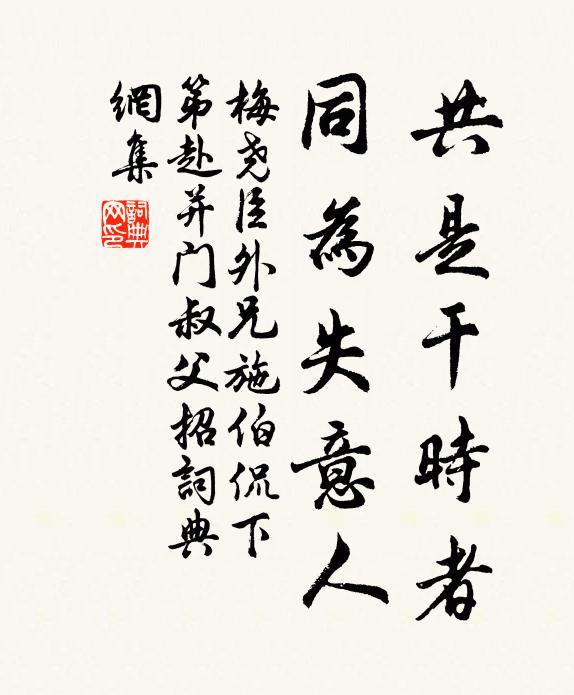 共是干時者
同為失意人
梅尧臣外兄施伯侃下
第赴并门叔父招詞典
網集
詞典
网印